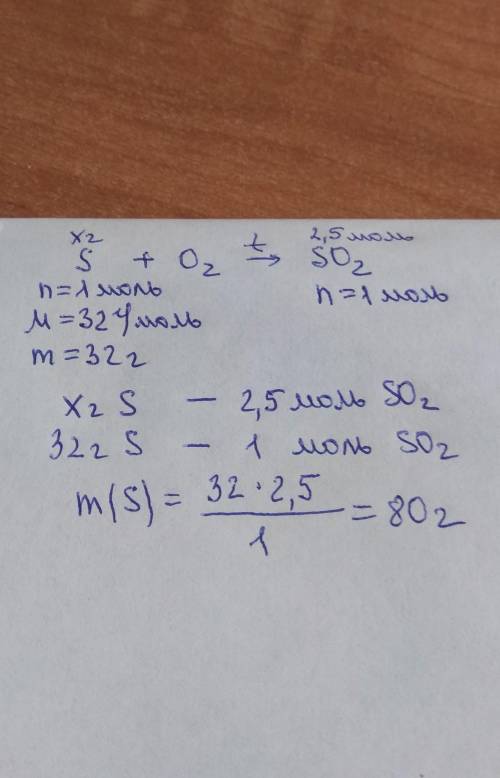 хг 2,5 моль
S + O₂ →ᵗ SO₂
n = 1 моль n = 1 моль
M = 32 г/моль
m = 32 г
х г S – 2,5 моль SO₂
32 г S – 1 моль SO₂
m(S) = 32 · 2,5 / 1 = 80 г